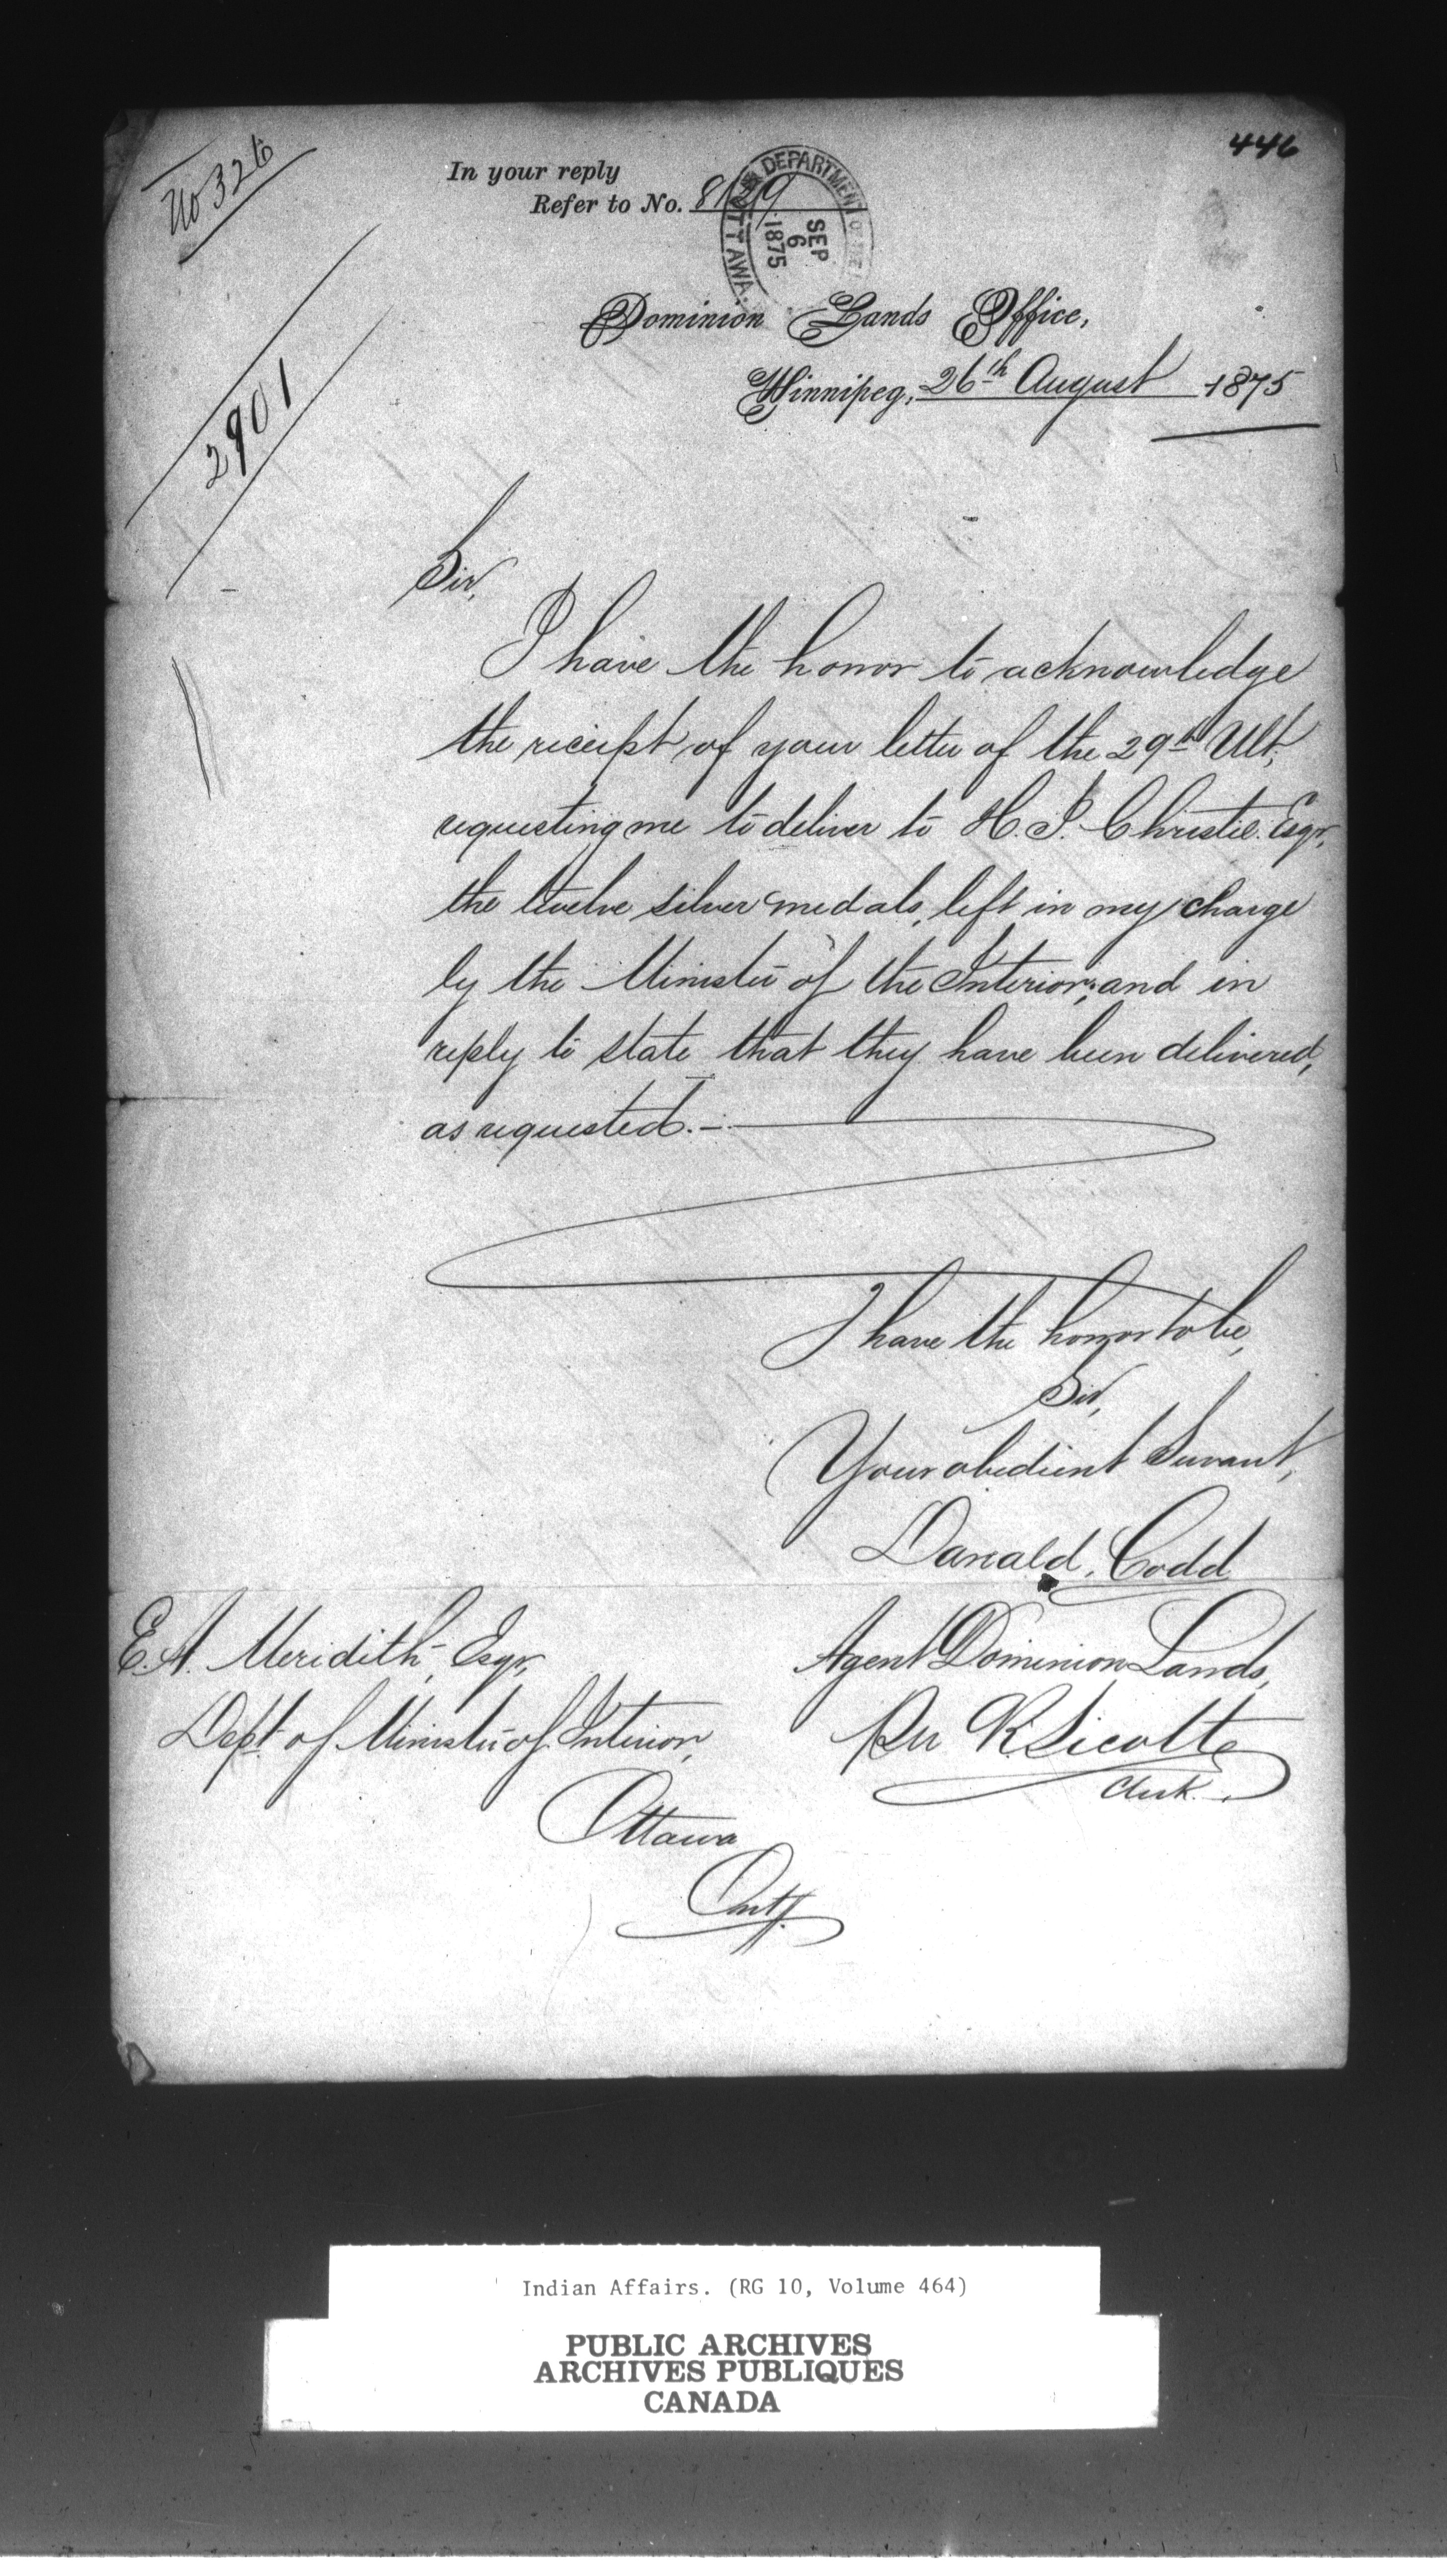 446
No 326
In your reply
Refer to No. 8129
DEPARTMENT OF
OTTAWA.
SEP
6
1875
Dominion Lands Office,
Winnipeg, 26th August 1875
2901
Sir,
I have the honor to acknowledge
the receipt of your letter of the 29th Ult,
requesting me to deliver to Christie. Esqr,
the twelve silver medals, left in my charge
by the Minister of the Interior; and in
reply to state that they have been delivered,
as requested.—
I have the honor to be,
Sir,
Your obedient Servant,
Donald Codd
Agent Dominion Lands,
Per R. Sicotte
Clerk.
E. A. Meridith, Esqr,
Dept of Minister of Interior,
Ottawa
Ont.
Indian Affairs. (RG 10, Volume 464)
PUBLIC ARCHIVES
ARCHIVES PUBLIQUES
CANADA